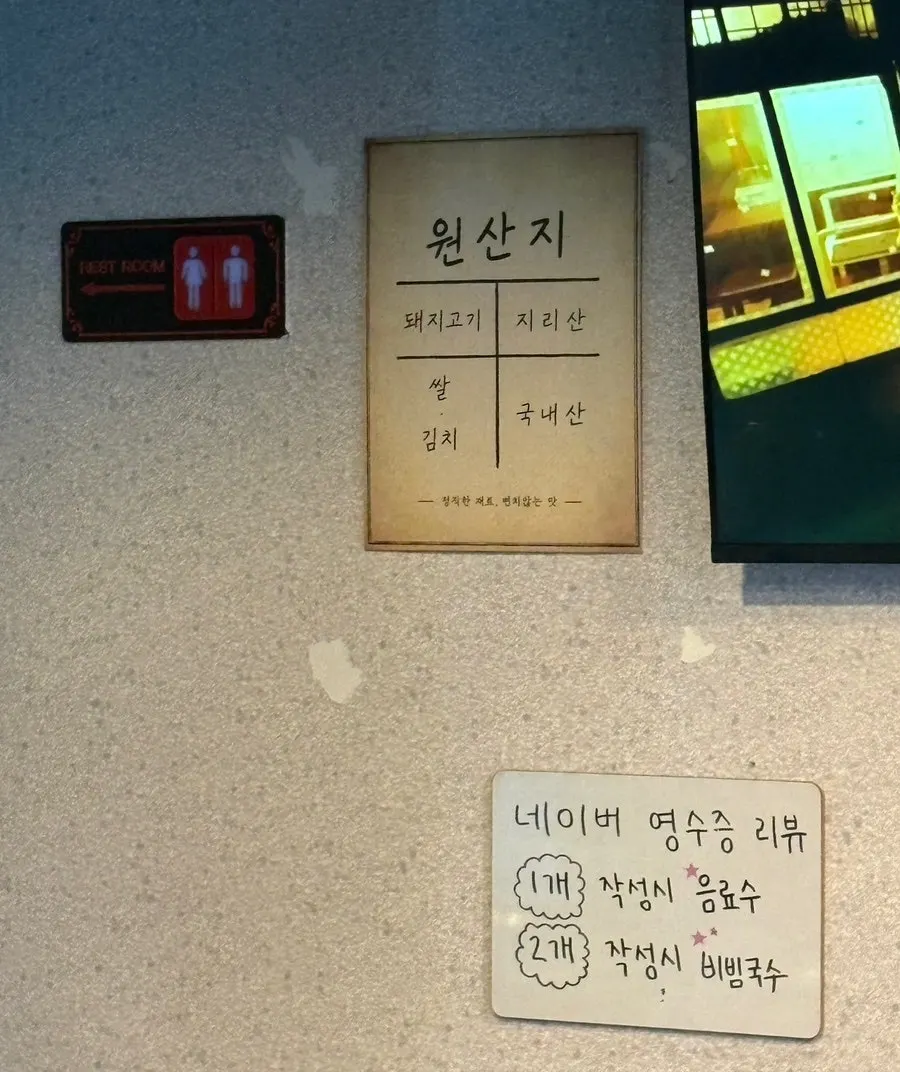 REST ROOM
원산지
돼지고기 지리산
쌀
·
김치
국내산
정직한 재료, 변치않는 맛
네이버 영수증 리뷰
1개 작성시 음료수
2개 작성시 비빔국수